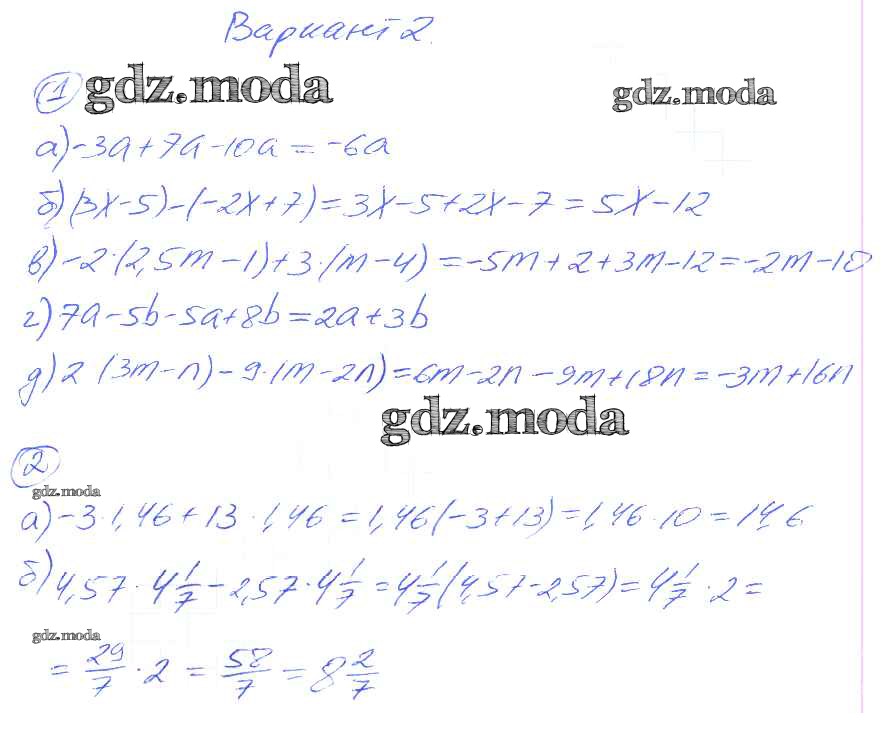 Вариант 2.
① gdz.moda gdz.moda
а) -3a+7a-10a=-6a
б) (3x-5)-(-2x+7)=3x-5+2x-7=5x-12
в) -2·(2,5m-1)+3·(m-4)=-5m+2+3m-12=-2m-10
г) 7a-5b-5a+8b=2a+3b
д) 2 (3m-n)-9·(m-2n)=6m-2n-9m+18n=-3m+16n
gdz.moda
②
gdz.moda
а) -3·1,46+13·1,46=1,46(-3+13)=1,46·10=14,6
б) 4,57·4 1/7-2,57·4 1/7=4 1/7(4,57-2,57)=4 1/7·2=
gdz.moda
= 29/7·2=58/7=8 2/7